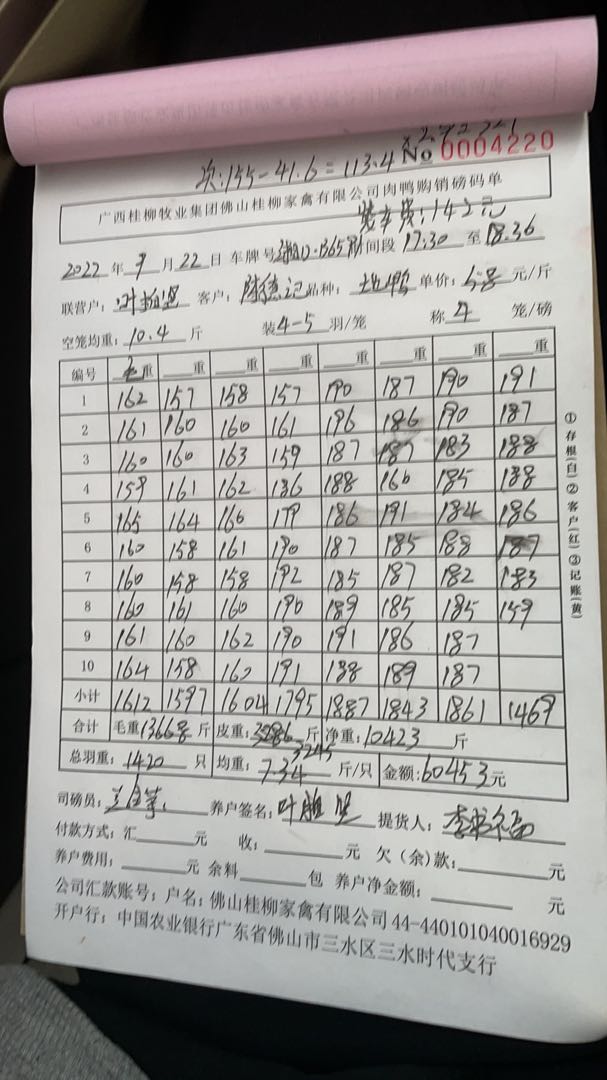 次:155-41.6=113.4
No 0004220
广西桂柳牧业集团佛山桂柳家禽有限公司肉鸭购销磅码单
装车费:142元
2022 年 9 月 22 日 车牌号 时间段 17:30 至 18:36
联营户: 叶 客户: 陈德记 品种: 鸭 单价: 5.8 元/斤
空笼均重: 10.4 斤 装 4-5 羽/笼 称 4 笼/磅
编号 毛重 重 重 重 重 重 重 重
1 162 157 158 157 190 187 190 191
2 161 160 160 161 196 186 190 187
3 160 160 163 159 187 187 183 188
4 159 161 162 186 188 160 185 188
5 165 164 160 179 186 191 184 186
6 160 158 161 190 187 185 188 187
7 160 158 158 192 185 187 182 183
8 160 161 160 190 189 185 185 159
9 161 160 162 190 191 186 187
10 164 158 160 191 188 189 187
小计 1612 1597 1604 1795 1887 1843 1861 1469
合计 毛重 13668 斤 皮重: 3286 斤 净重: 10423 斤
3245
总羽重: 1420 只 均重: 7.34 斤/只 金额: 60453 元
司磅员: 养户签名: 叶 提货人: 李
付款方式: 汇 元 收: 元 欠(余)款: 元
养户费用: 元 余料 包 养户净金额: 元
公司汇款账号: 户名: 佛山桂柳家禽有限公司 44-440101040016929
开户行: 中国农业银行广东省佛山市三水区三水时代支行
①存根(白)②客户(红)③记账(黄)